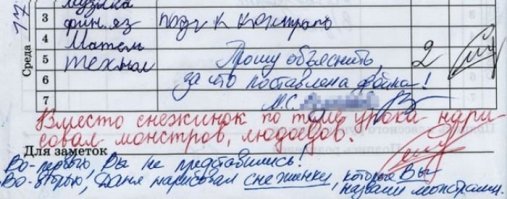 музыка
17
3 фин. яз подг к контроль
4 Матем
Среда 5 технол Прошу объяснить, 2
6 за что поставлена двойка!
7 М.С.
Вместо снежинок по теме урока нари
совал монстров, людоедов.
Для заметок
Во-первых, Вы не представились!
Во-вторых, Даня нарисовал снежинки, которые Вы
назвали монстрами.